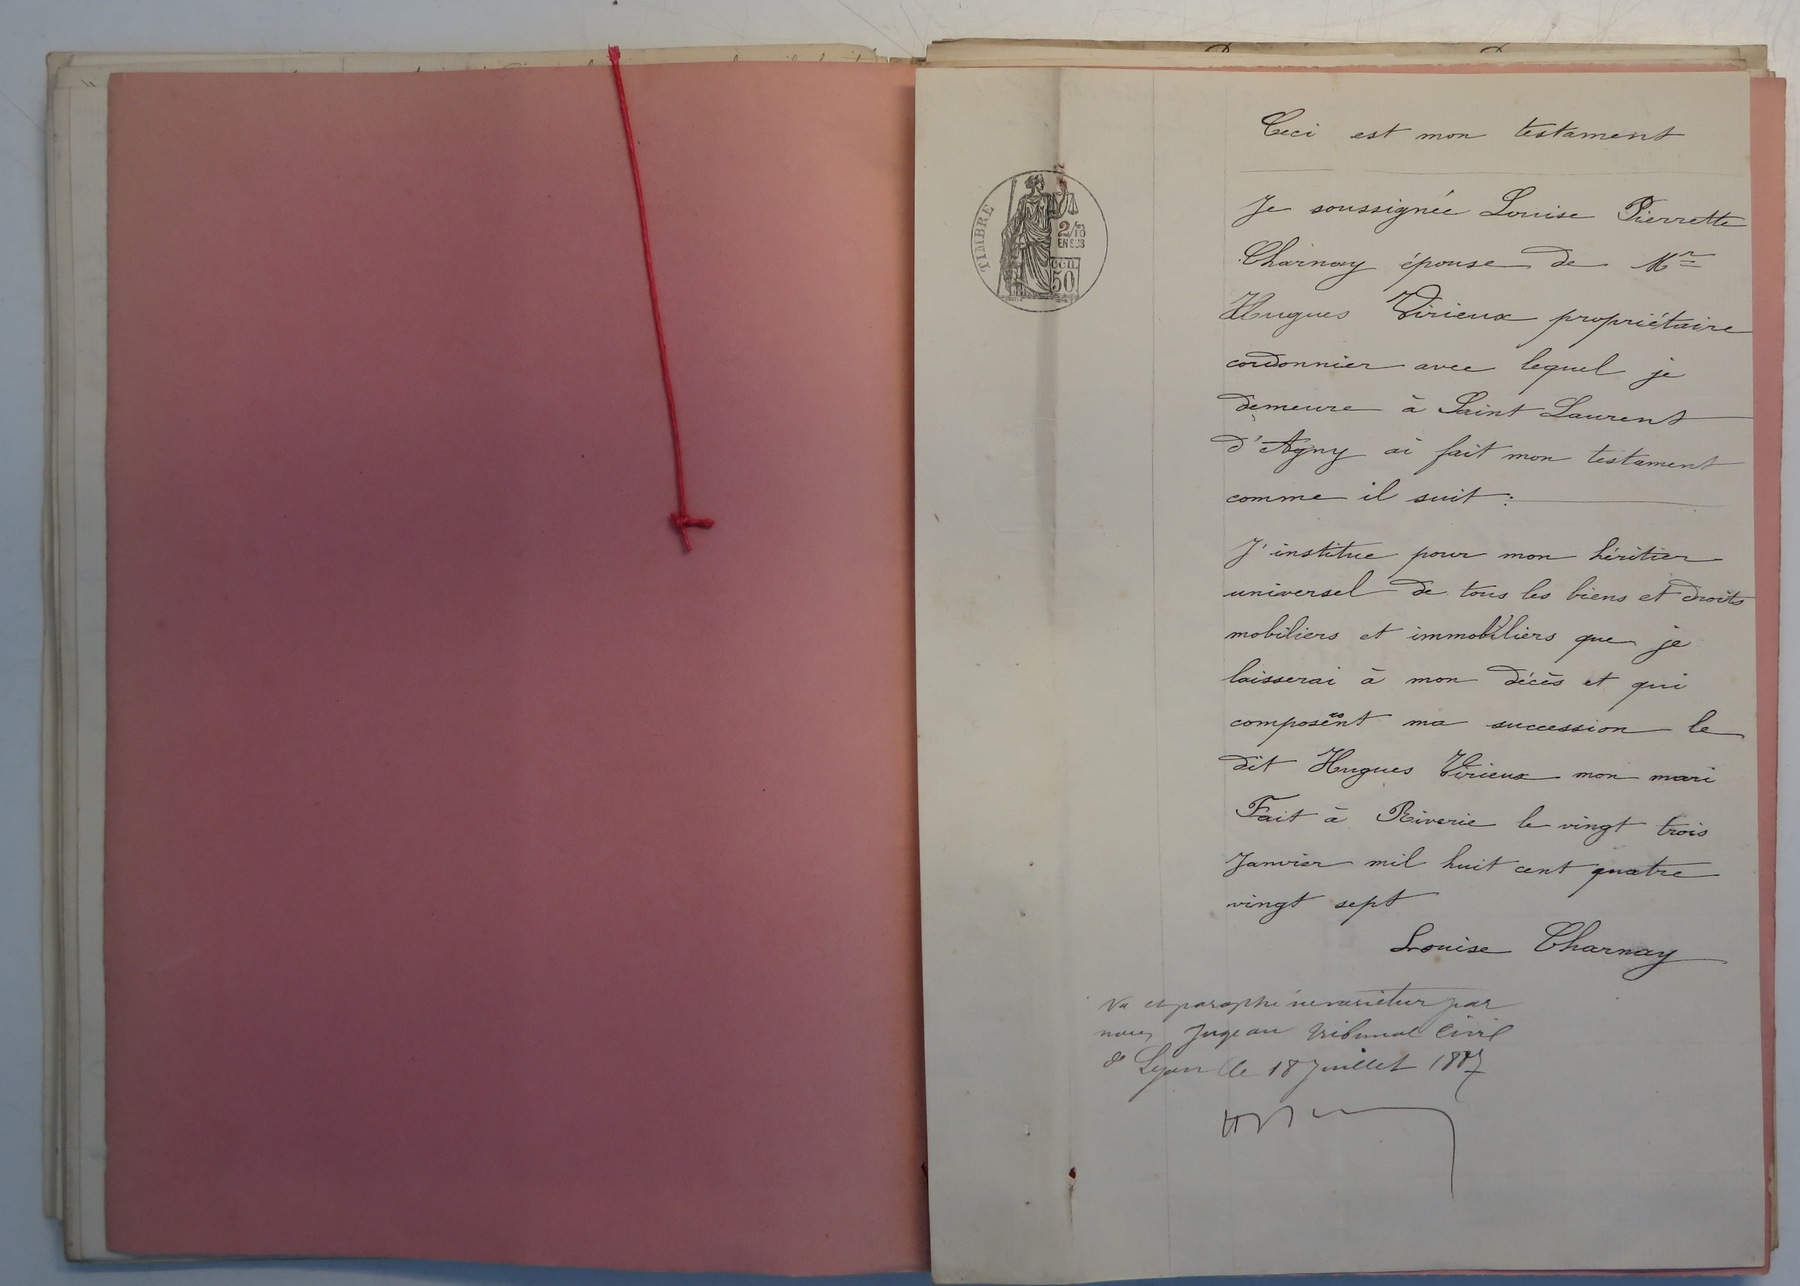 Ceci est mon testament
TIMBRE
2/10
EN SUS
CEN.
50
Je soussignée Louise Pierrette
Charnay épouse de Mr
Hugues Virieux propriétaire
cordonnier avec lequel je
demeure à Saint Laurent
d'Agny ai fait mon testament
comme il suit :
J'institue pour mon héritier
universel de tous les biens et droits
mobiliers et immobiliers que je
laisserai à mon décès et qui
composent ma succession le
dit Hugues Virieux mon mari
Fait à Riverie le vingt trois
Janvier mil huit cent quatre
vingt sept
Louise Charnay
Vu et paraphé ne varietur par
nous Juge au tribunal Civil
de Lyon le 18 Juillet 1887